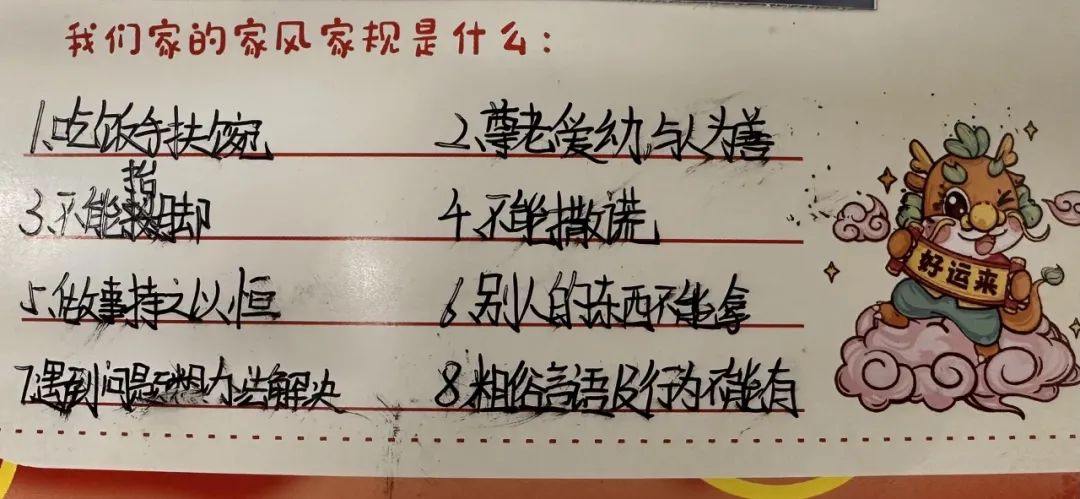 我们家的家风家规是什么:
1、吃饭手扶碗
2、尊老爱幼,与人为善
3、不能抬脚
4、不能撒谎
5、做事持之以恒
6、别人的东西不能拿
7、遇到问题想办法解决
8、粗俗言语及行为不能有
好运来